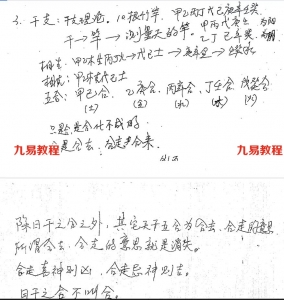 3. 干支：干支理论。10根竹竿 甲乙丙丁戊己庚辛壬癸
干→竿→测量天的竿。甲丙戊庚壬 为阳
乙丁己辛癸
相生：甲乙木生丙丁火→戊己土→庚辛金→壬癸水
相克：甲乙木克戊己土
五合：甲己合、乙庚合、丙辛合、丁壬合、戊癸合
(土) (金) (水) (木) (火)
只是合去，合走
九易教程
九易教程
除日干之合之外，其它天干五合为合去、合走的意思
所谓合去、合走的意思就是消失。
合走喜神则凶，合走忌神则吉。
日干之合不叫合。